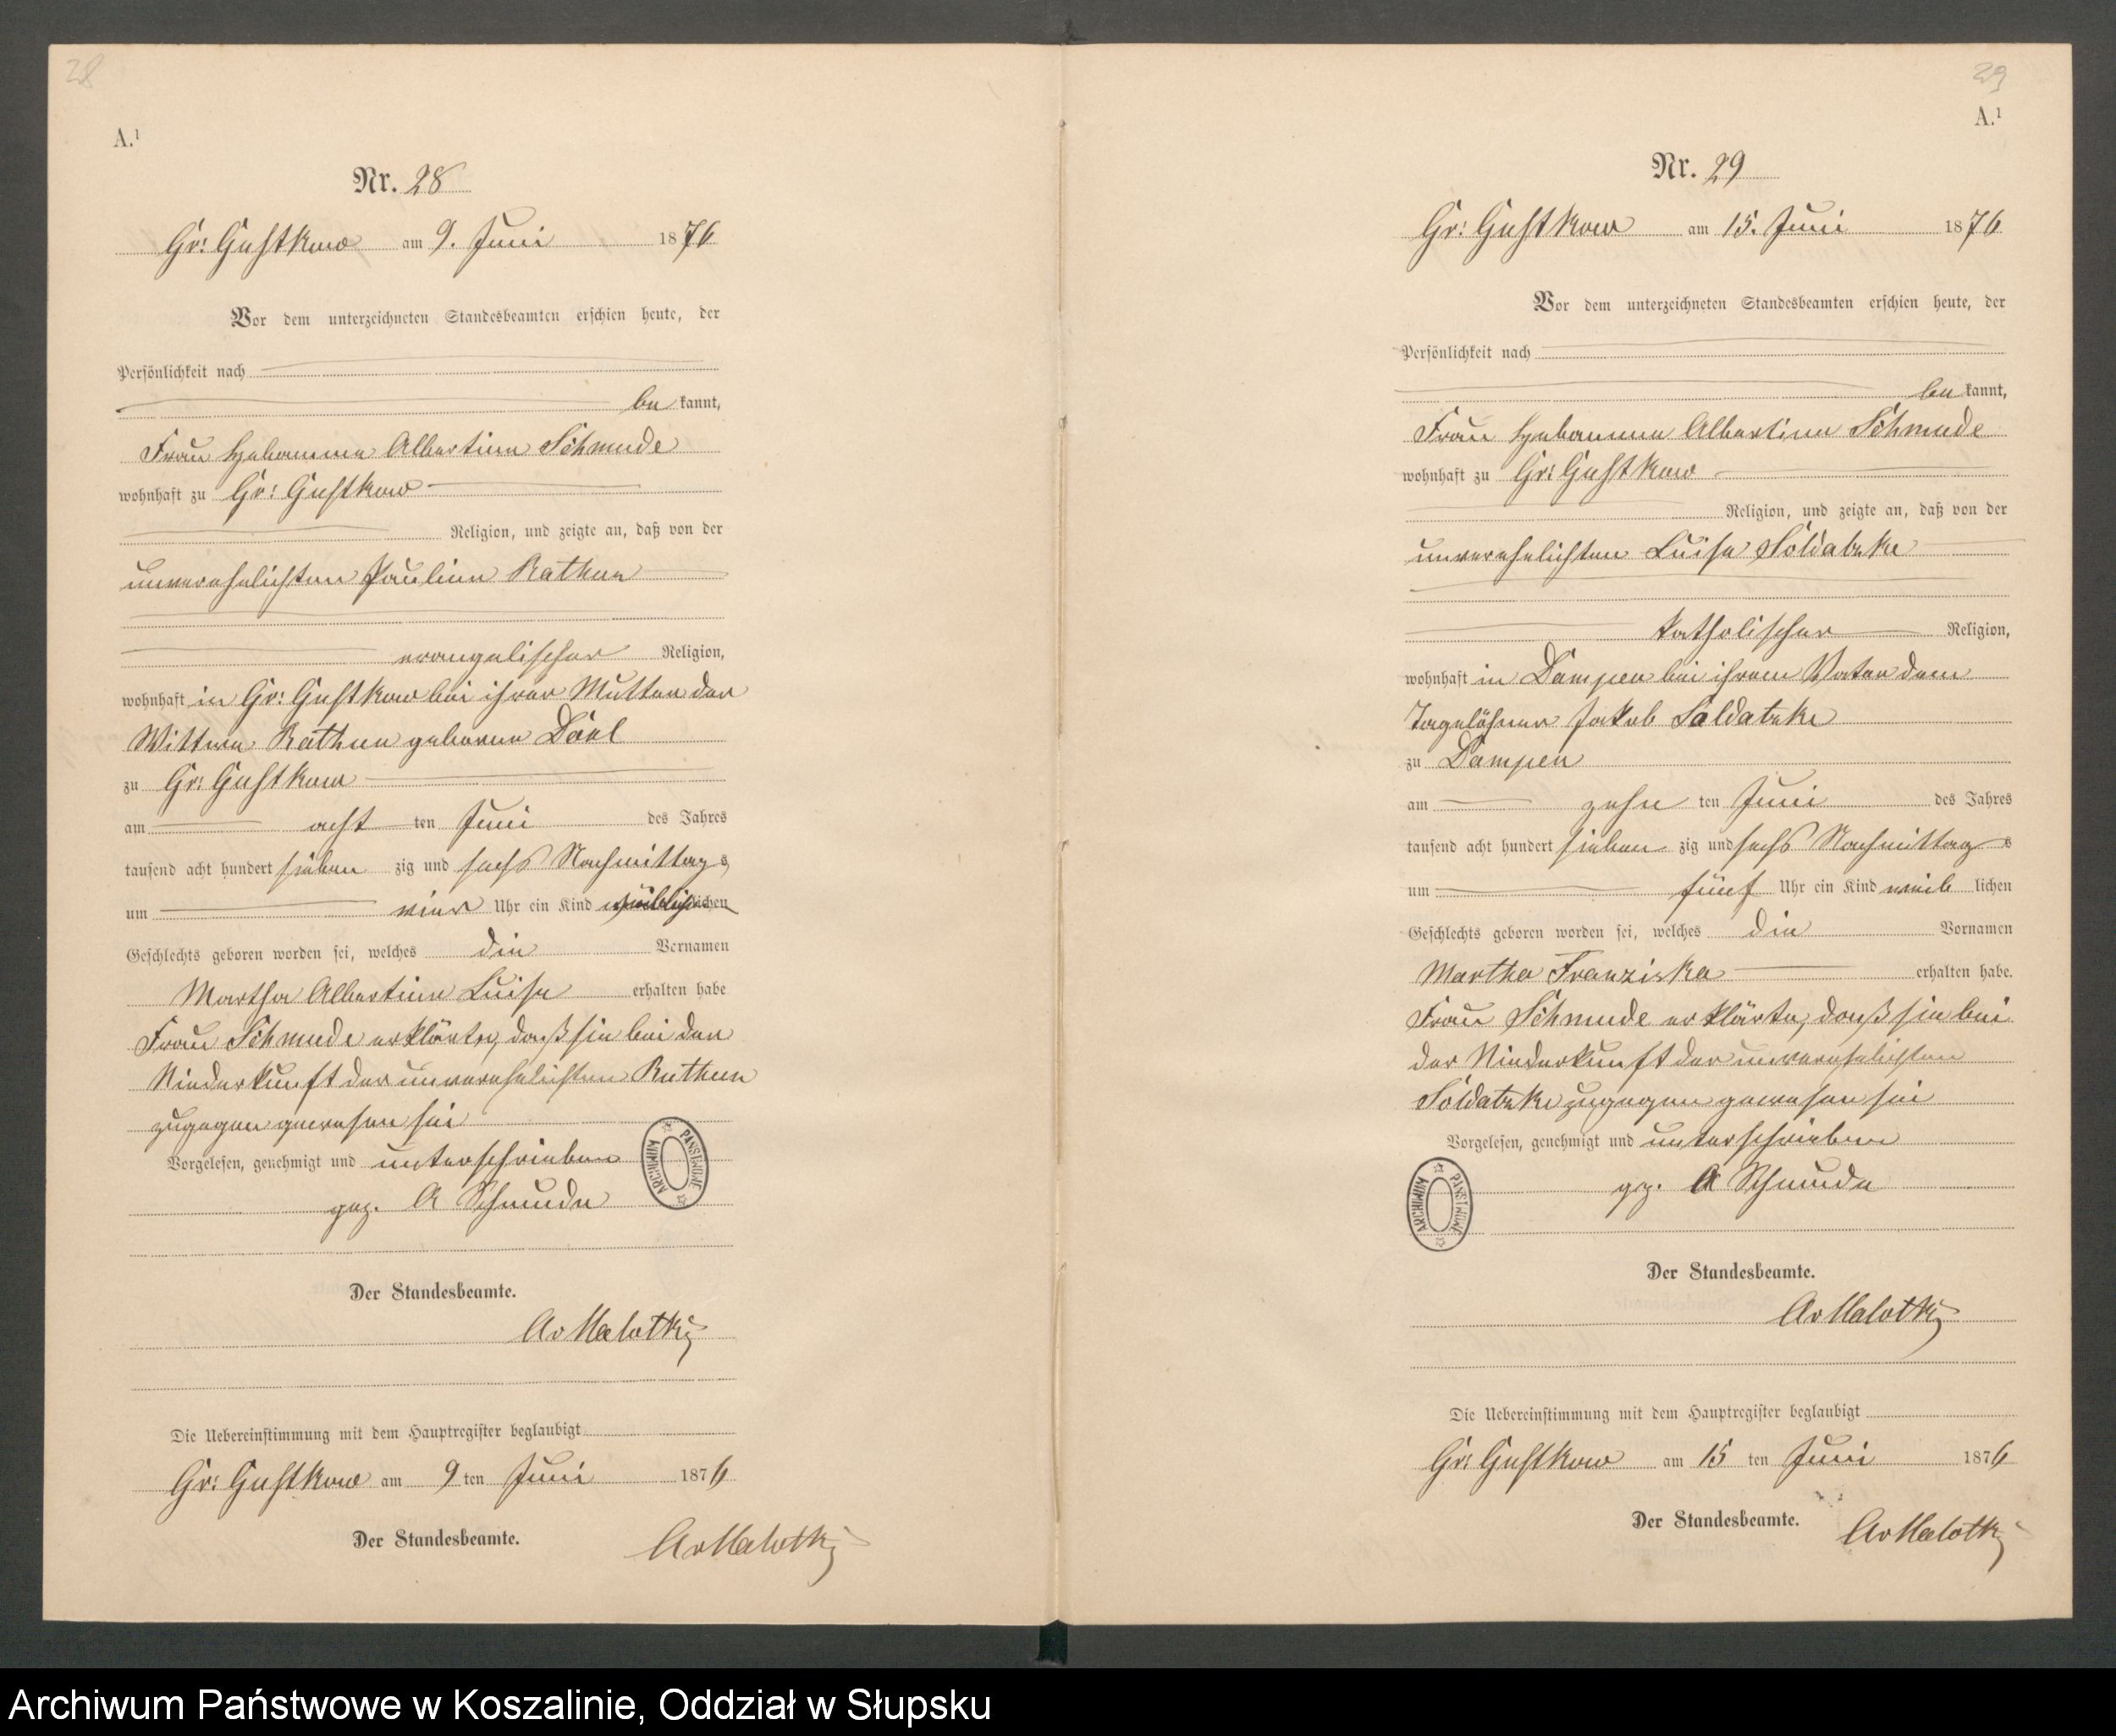 28
A.¹
Nr. 28
Gr: Gustkow am 9. Juni 1876
Vor dem unterzeichneten Standesbeamten erschien heute, der
Persönlichkeit nach
be kannt,
Frau Hebamme Albertine Schmude
wohnhaft zu Gr: Gustkow
Religion, und zeigte an, daß von der
unverehelichten Pauline Rathke
evangelischer Religion,
wohnhaft in Gr: Gustkow bei ihrer Mutter der
Wittwe geborene
zu Gr: Gustkow
am acht ten Juni des Jahres
tausend acht hundert sieben zig und sechs Nachmittags
um vier Uhr ein Kind lichen
Geschlechts geboren worden sei, welches die Vornamen
Martha Albertine Luise erhalten habe
Frau Schmude erklärte, daß sie bei der
Niederkunft der unverehelichten
zugegen gewesen sei
Vorgelesen, genehmigt und unterschrieben
gez. A Schmude
ARCHIWUM PAŃSTWOWE
Der Standesbeamte.
Av Malotky
Die Uebereinstimmung mit dem Hauptregister beglaubigt
Gr: Gustkow am 9 ten Juni 1876
Der Standesbeamte. Av Malotky
29
A.¹
Nr. 29
Gr: Gustkow am 15. Juni 1876
Vor dem unterzeichneten Standesbeamten erschien heute, der
Persönlichkeit nach
be kannt,
Frau Hebamme Albertine Schmude
wohnhaft zu Gr: Gustkow
Religion, und zeigte an, daß von der
unverehelichten Luise Soldatzke
katholischer Religion,
wohnhaft in Dampen bei ihrem Vater dem
Tagelöhner Jakob Soldatzke
zu Dampen
am zehn ten Juni des Jahres
tausend acht hundert sieben zig und sechs Nachmittag s
um fünf Uhr ein Kind weib lichen
Geschlechts geboren worden sei, welches die Vornamen
Martha Franziska erhalten habe.
Frau Schmude erklärte, daß sie bei
der Niederkunft der unverehelichten
Soldatzke zugegen gewesen sei
Vorgelesen, genehmigt und unterschrieben
gez. A Schmude
ARCHIWUM PAŃSTWOWE
Der Standesbeamte.
Av Malotky
Die Uebereinstimmung mit dem Hauptregister beglaubigt
Gr: Gustkow am 15 ten Juni 1876
Der Standesbeamte. Av Malotky
Archiwum Państwowe w Koszalinie, Oddział w Słupsku